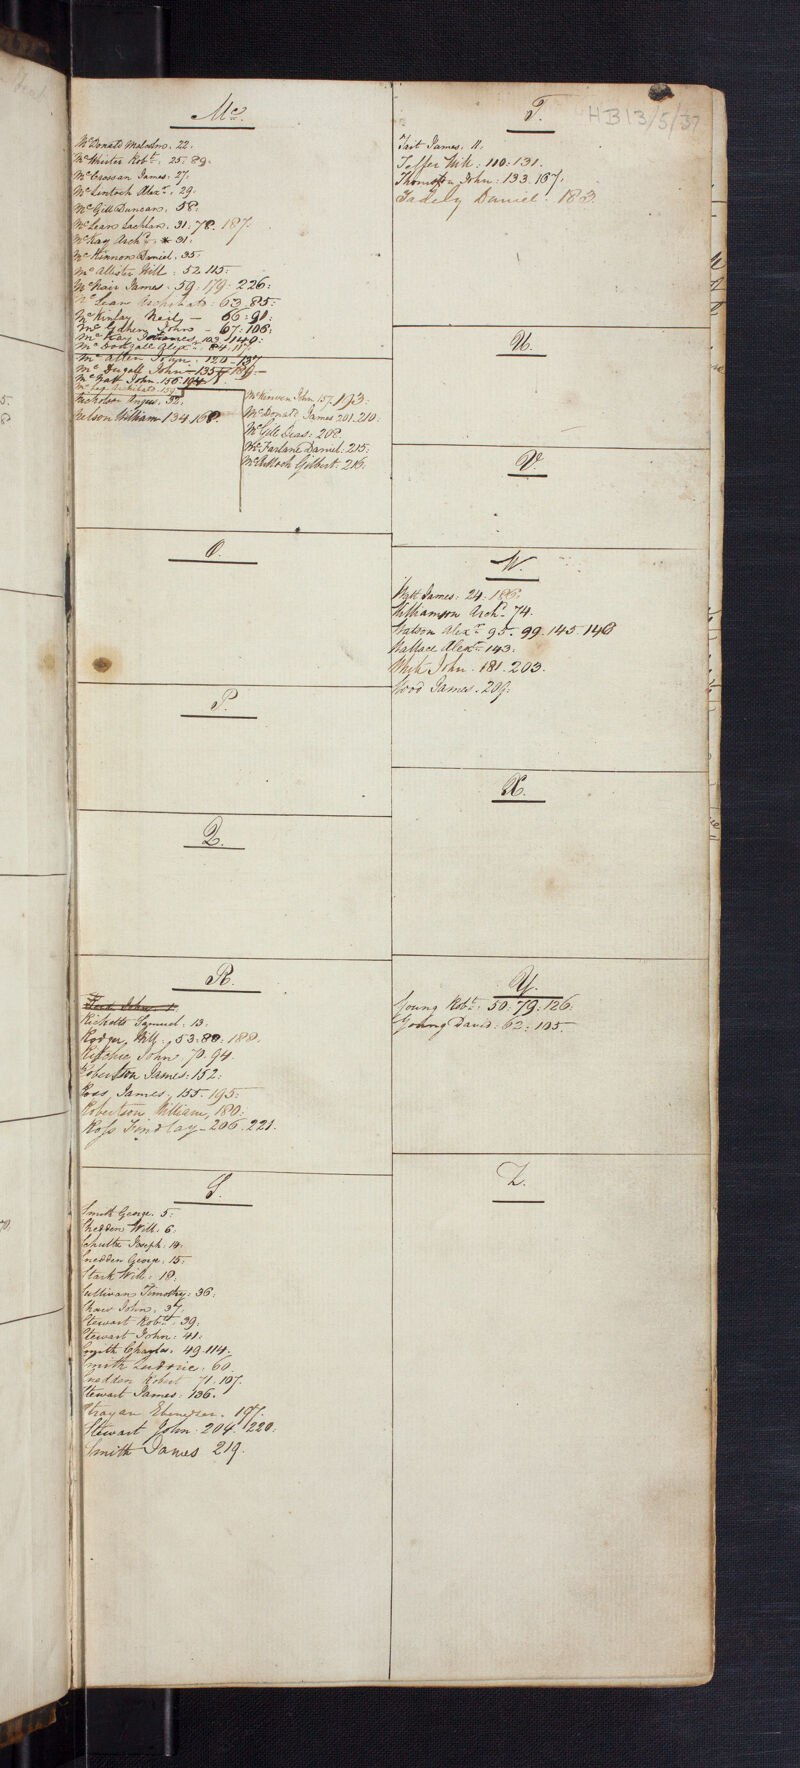 Mc.
McDonald Malcolm. 22.
McWhirter Robt. 25. 89.
McCrossan James. 27.
McLintoch Alexr. 29.
McGill Duncan. 58.
McLean Lachlan. 31: 78. 187.
McKay Archd. * 31.
McKinnon Daniel. 35.
McAllister Will: 52. 115:
McNair James. 59: 179: 226:
McLean Archibald: 63. 85:
McKinlay Neil — 66: 91:
John – 67: 106:
McKay James 103. 140:
McDougall Alexr. 84. 117.
McAllen John. 120 - 137
McDugall John — 135 189 —
McNatt John. 156. 194.
Archibald 159
Nicholson Angus. 32.
Nelson William 134. 168.
McKinven John 157. 193:
McDonald James 201. 210:
McGill Dens: 208.
McFarlane Daniel: 215:
McCulloch Gilbert: 216:
O.
P.
Q.
R.
Ricketts Samuel. 13.
Rodger Will: 53. 88: 188.
Ritchie John 70. 94.
Robertson James: 152:
Ross James, 155. 195:
Robertson William, 180:
Ross Findlay – 206. 221.
S.
Smith George. 5:
Shedden Will. 6.
Schultz Joseph. 14.
Snedden George. 15:
Stark Will: 18.
Sullivan Timothy: 36:
Shaw John. 37.
Stewart Robt. 39:
Stewart John: 41:
Smyth Charles. 49. 114:
Smith Ludovic. 60.
Snedden Robert 71. 107.
Stewart James: 136.
Strayan Ebenezer. 197.
Stewart John: 204. 220:
Smith James 219.
HB13/5/37
T.
Tait James. 11.
Telfer Will: 110: 131.
Thomston John: 133. 167.
Tadely Daniel: 183.
U.
V.
W.
Wyll James: 24: 186.
Williamson Archd. 74.
Watson Alexr. 95. 99. 145. 146
Wallace Alexr. 143.
Whyte John. 181. 203.
Wood James. 209.
X.
Y.
Young Robt. 50. 79: 126.
Young David: 62: 105.
Z.